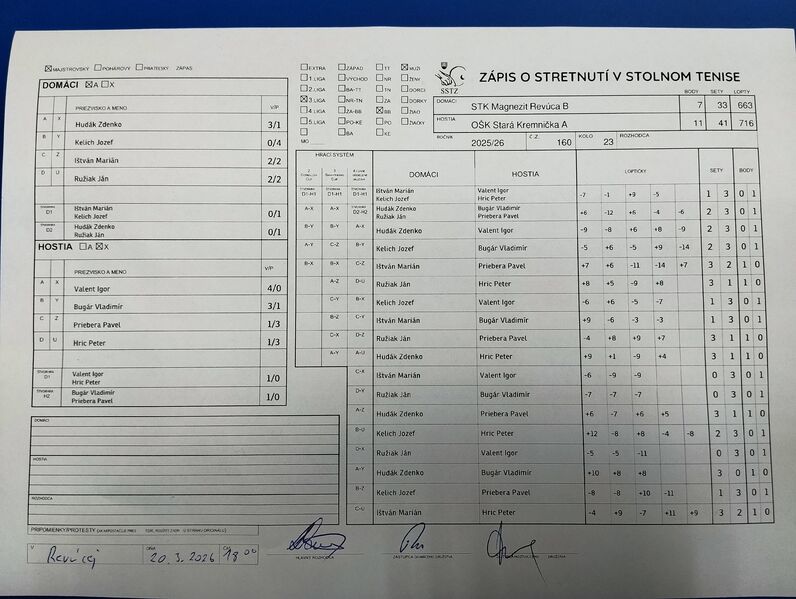 MAJSTROVSKÝ POHÁROVÝ PRIATEĽSKÝ ZÁPAS
DOMÁCI A X
PRIEZVISKO A MENO V/P
A X Hudák Zdenko 3/1
B Y Kelich Jozef 0/4
C Z Ištván Marián 2/2
D U Ružiak Ján 2/2
D1 Ištván Marián 0/1
Kelich Jozef
D2 Hudák Zdenko 0/1
Ružiak Ján
HOSTIA A X
PRIEZVISKO A MENO V/P
A X Valent Igor 4/0
B Y Bugár Vladimír 3/1
C Z Priebera Pavel 1/3
D U Hric Peter 1/3
Valent Igor 1/0
Hric Peter
H2 Bugár Vladimír 1/0
Priebera Pavel
DOMÁCI
HOSTIA
ROZHODCA
PRIPOMIENKY/PROTESTY
V Revúcej Dňa 20.3.2026 O 18 00
EXTRA ZÁPAD TT MUŽI
1. LIGA VÝCHOD NR ŽENY
2. LIGA BA-TT TN DORCI
3. LIGA NR-TN ZA DORKY
4. LIGA ZA-BB BB ŽIACI
5. LIGA PO-KE PO ŽIAČKY
BA KE
MO
SSTZ
ZÁPIS O STRETNUTÍ V STOLNOM TENISE
BODY SETY LOPTY
DOMÁCI STK Magnezit Revúca B 7 33 663
HOSTIA OŠK Stará Kremnička A 11 41 716
ROČNÍK 2025/26 Č.Z. 160 KOLO 23 ROZHODCA
HRACÍ SYSTÉM DOMÁCI HOSTIA LOPTIČKY SETY BODY
D1-H1 D1-H1 D1-H1 Ištván Marián Valent Igor -7 -1 +9 -5 1 3 0 1
Kelich Jozef Hric Peter
A-X A-X D2-H2 Hudák Zdenko Bugár Vladimír +6 -12 +6 -4 -6 2 3 0 1
Ružiak Ján Priebera Pavel
B-Y B-Y A-X Hudák Zdenko Valent Igor -9 -8 +6 +8 -9 2 3 0 1
A-Y C-Z B-Y Kelich Jozef Bugár Vladimír -5 +6 -5 +9 -14 2 3 0 1
B-X B-X C-Z Ištván Marián Priebera Pavel +7 +6 -11 -14 +7 3 2 1 0
A-Z D-U Ružiak Ján Hric Peter +8 +5 -9 +8 3 1 1 0
C-Y B-X Kelich Jozef Valent Igor -6 +6 -5 -7 1 3 0 1
B-Z C-Y Ištván Marián Bugár Vladimír +9 -6 -3 -3 1 3 0 1
C-X D-Z Ružiak Ján Priebera Pavel -4 +8 +9 +7 3 1 1 0
A-Y A-U Hudák Zdenko Hric Peter +9 +1 -9 +4 3 1 1 0
C-X Ištván Marián Valent Igor -6 -9 -9 0 3 0 1
D-Y Ružiak Ján Bugár Vladimír -7 -7 -7 0 3 0 1
A-Z Hudák Zdenko Priebera Pavel +6 -7 +6 +5 3 1 1 0
B-U Kelich Jozef Hric Peter +12 -8 +8 -4 -8 2 3 0 1
D-X Ružiak Ján Valent Igor -5 -5 -11 0 3 0 1
A-Y Hudák Zdenko Bugár Vladimír +10 +8 +8 3 0 1 0
B-Z Kelich Jozef Priebera Pavel -8 -8 +10 -11 1 3 0 1
C-U Ištván Marián Hric Peter -4 +9 -7 +11 +9 3 2 1 0
HLAVNÝ ROZHODCA ZÁSTUPCA DOMÁCEHO DRUŽSTVA DRUŽSTVA